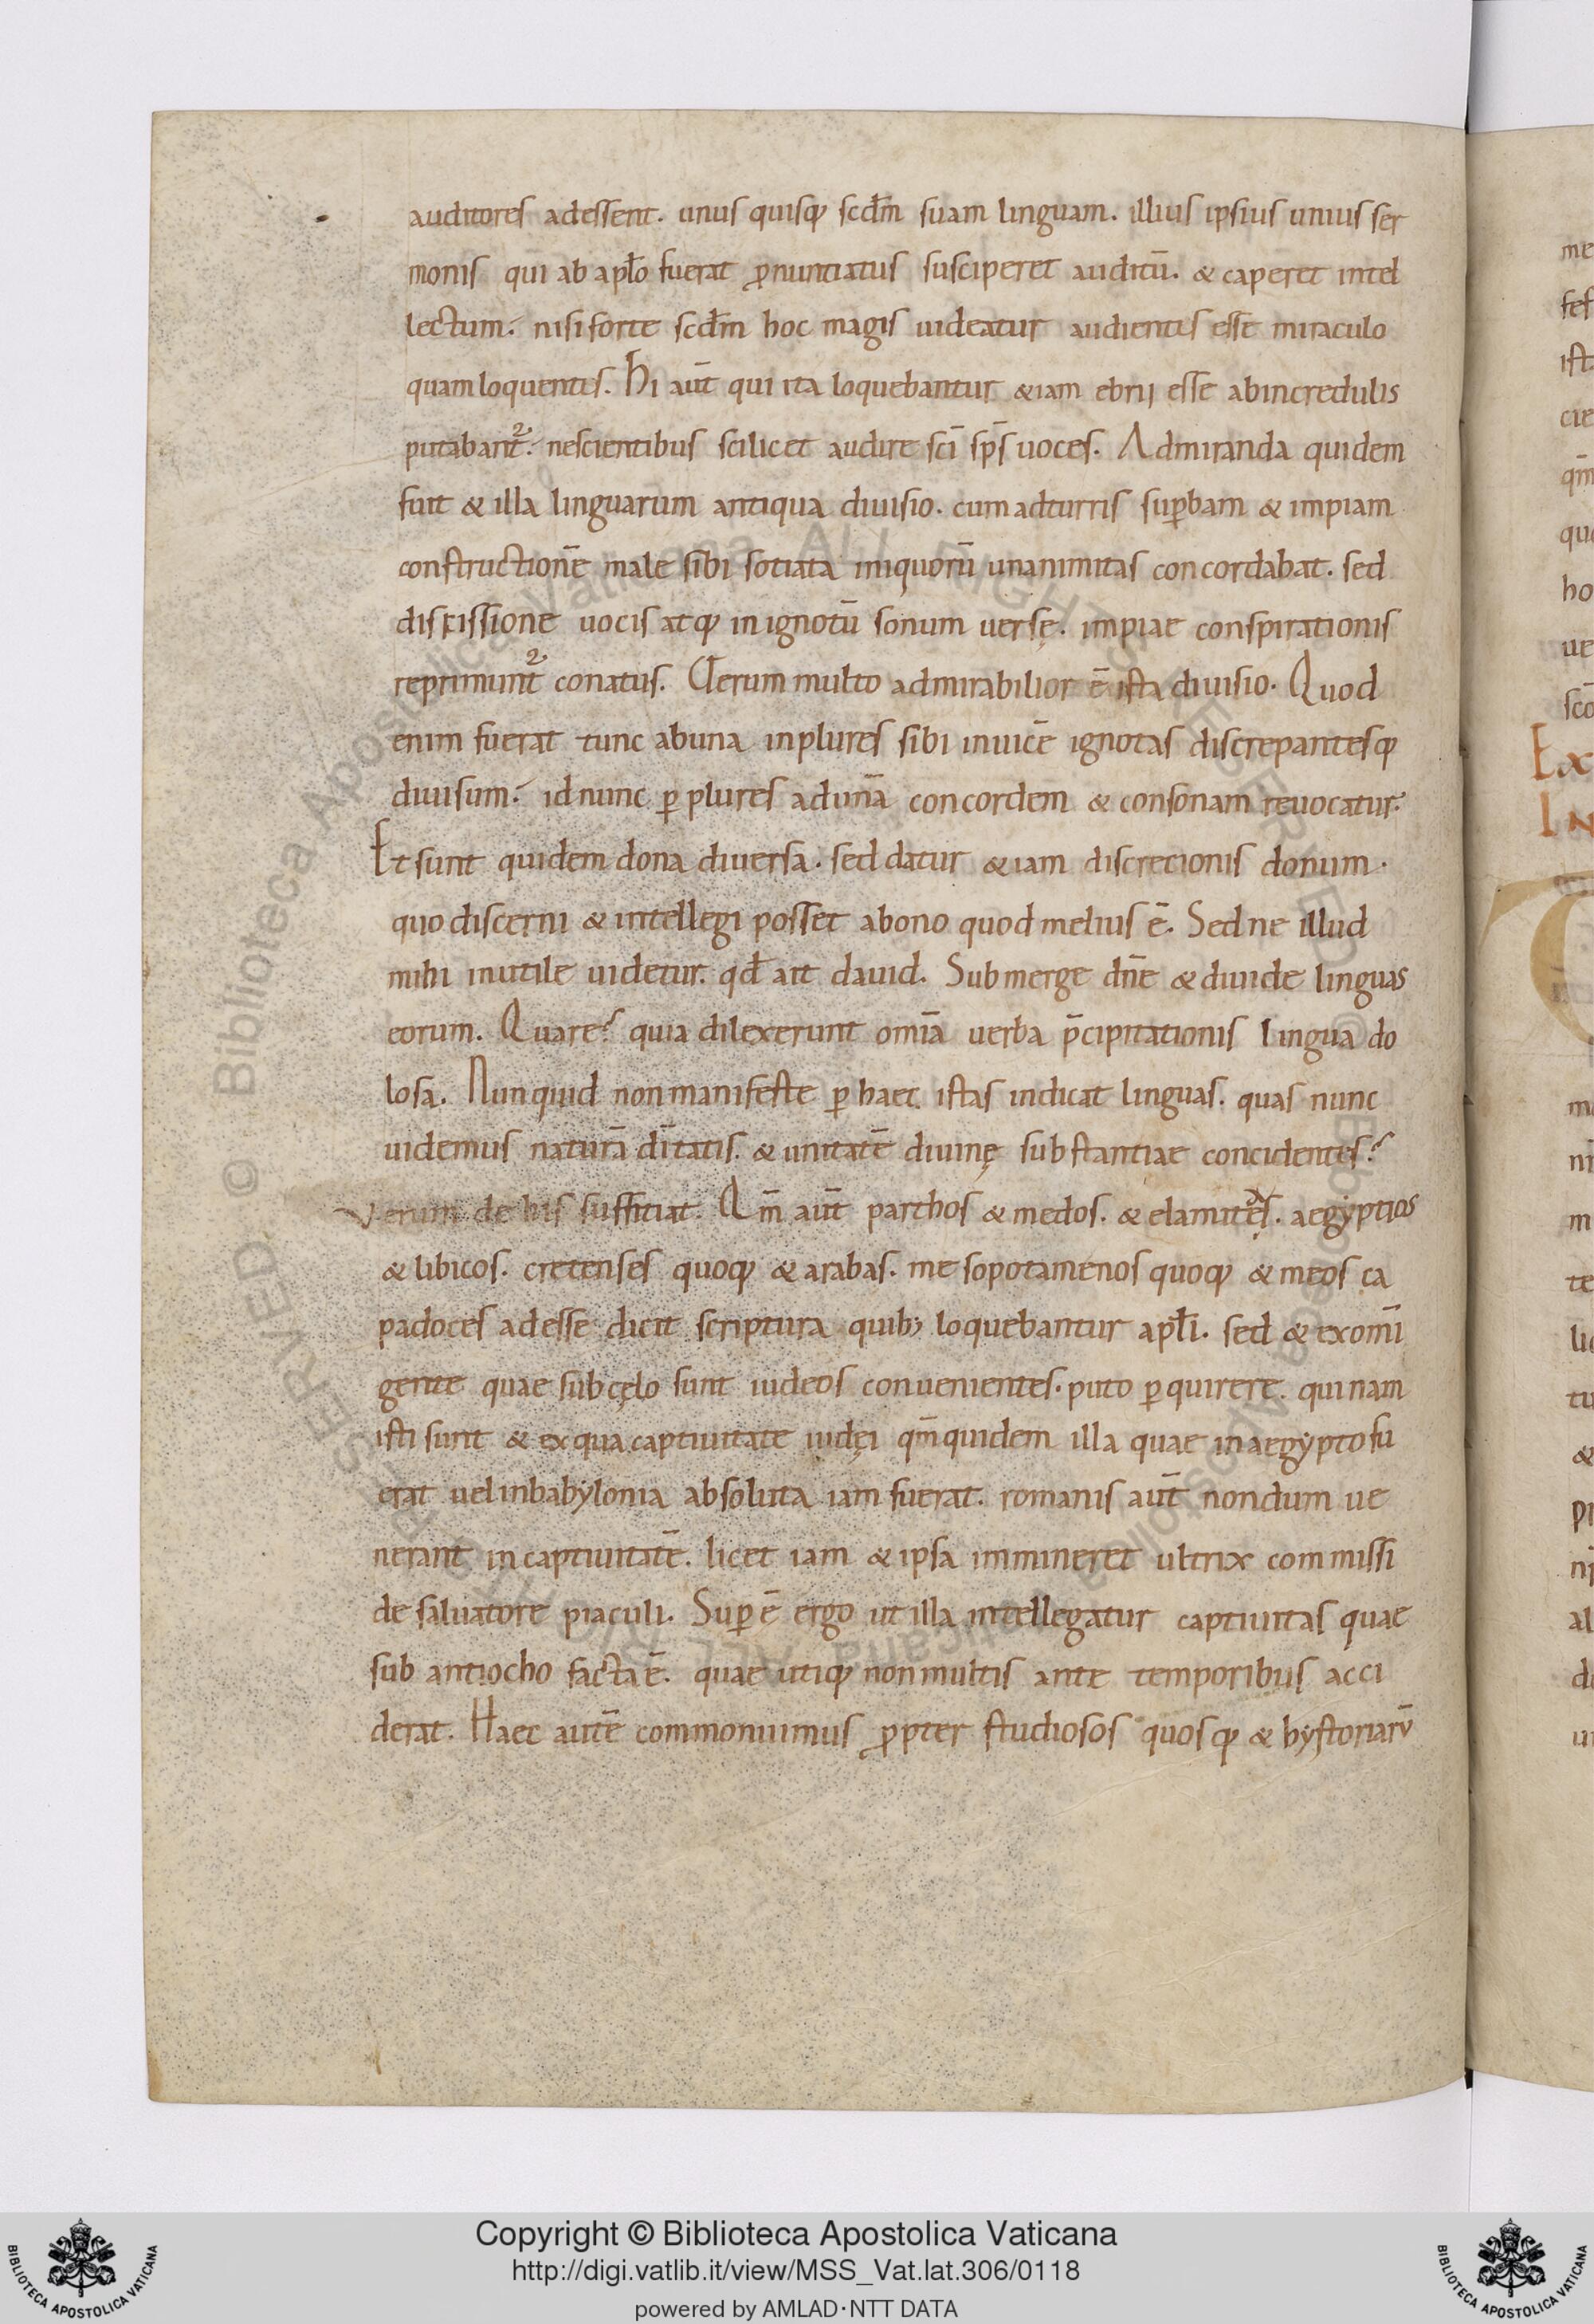 auditores adessent. unus quisq; scdm̄ suam linguam. illius ipsius unius ser
monis qui ab aplo fuerat ꝓnuntiatus susciperet auditū. & caperet intel
lectum. nisi forte scdm̄ hoc magis uideatur audientis esse miraculo
quam loquentis. Hi aut̄ qui ita loquebantur &iam ebrij esse abincredulis
putabant̉. nescientibus scilicet audire sc̄i sp̄s uoces. Admiranda quidem
fuit & illa linguarum antiqua diuisio. cum adturris suꝑbam & impiam
constructionē male sibi sotiata iniquorū unanimitas concordabat. sed
discissione uocis atq; in ignotū sonum uersę. impiae conspirationis
reprimunt̉ conatus. Uerum multo admirabilior ē ista diuisio. Quod
enim fuerat tunc abuna inplures sibi inuicē ignotas discrepantesq;
diuisum. id nunc ꝑ plures adunā concordem & consonam reuocatur.
Et sunt quidem dona diuersa. sed datur &iam discrecionis donum.
quo discerni & intellegi posset abono quod melius ē. Sed ne illud
mihi inutile uidetur. qd̄ ait dauid. Submerge dn̄e & diuide linguas
eorum. Quare? quia dilexerunt om̄ia uerba p̄cipitationis lingua do
losa. Nunquid non manifeste ꝑ haec istas indicat linguas. quas nunc
uidemus naturā di᷑tatis. & unitatē diuinę substantiae concidentes?
Verum de his suffitiat. Qm̄ aut̄ parthos & medos. & elamites. aegyptios
& libicos. cretenses quoq; & arabas. mesopotamenos quoq; & meos ca
padoces adesse dicit scriptura quib; loquebantur apl̄i. sed & exomī
gente quae sub cęlo sunt iudeos conuenientes. puto ꝑquirere. qui nam
isti sunt & ex qua captiuitate iudęi qm̄quidem illa quae in aegypto fu
erat uel inbabylonia absoluta iam fuerat. romanis aut̄ nondum ue
nerant in captiuitatē. licet iam & ipsa immineret ultrix commissi
de saluatore piaculi. Suꝑ ē ergo ut illa intellegatur captiuitas quae
sub antiocho facta ē. quae utiq; non multis ante temporibus acci
derat. Haec autē commonuimus ꝓpter studiosos quosq; & hystoriarū
Copyright © Biblioteca Apostolica Vaticana
http://digi.vatlib.it/view/MSS_Vat.lat.306/0118
powered by AMLAD·NTT DATA